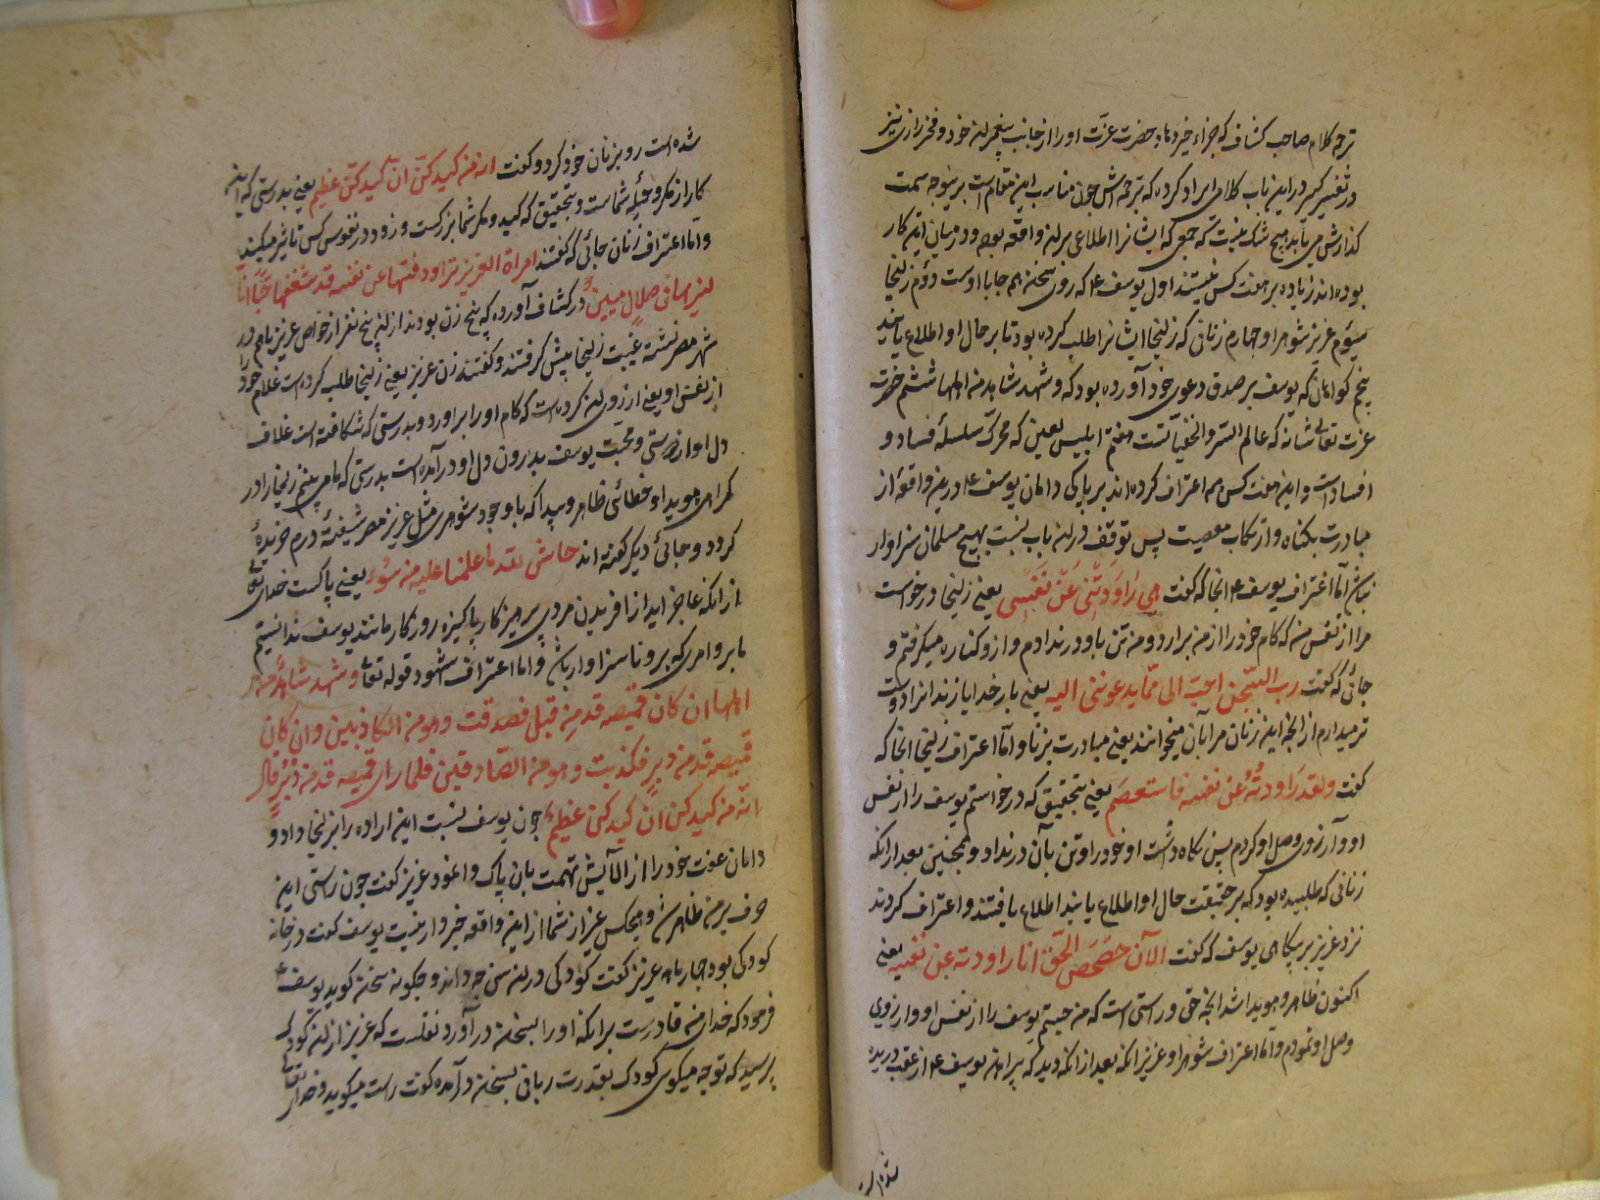 ترجمه کلام صاحب کشاف که جزاء خیر دهاد حضرت عزّت او را از جانب پیغمبران خود و فخر رازی نیز
در تفسیر کبیر درین باب کلامی ایراد کرده که ترجمه‌اش چون مناسب این مقام است برینوجه سمت
گذارش می‌یابد هیچ شک نیست که جمعی که ایشانرا اطلاعی برین واقعه بوده و در میان این کار
بوده‌اند زیاده بر هفت کس نیستند اول یوسف ع که روی سخن همه جا با اوست دوّم زلیخا
سیوم عزیز شوهر او چهارم زنانی که زلیخا ایشانرا طلب کرده بود تا بر حال او اطلاع یابند
پنجم گواهان که یوسف بر صدق دعوی خود آورده بود که و شهد شاهد من اهلها ششم حضرت
عزت تعالی شانه که عالم السرّ والخفیّاتست هفتم ابلیس لعین که محرک سلسلهٔ فساد و
افسادست و این هفت کس همه اعتراف کرده‌اند بر پاکی دامان یوسف ع درین واقعه از
مبادرت بگناه و ارتکاب معصیت پس توقف درین باب نسبت بهیچ مسلمان سزاوار
نباشد امّا اعتراف یوسف ع انجا که گفت هی راودتنی عن نفسی یعنی زلیخا درخواست
مرا از نفس من که کام خود را از من برارد و من تن باو در ندادم و ازو کناره میگرفتم و
جائی که گفت رب السّجن احبّ الی ممّا یدعوننی الیه یعنی بار خدایا زندانرا دوست
تر میدارم از انچه این زنان مرا بآن میخوانند یعنی مبادرت بزنا و امّا اعتراف زلیخا انجا که
گفت ولقد راودتُهُ عن نفسه فاستعصم یعنی بتحقیق که درخواستم یوسف را از نفس
او و آرزوی وصل او کردم پس نگاه داشت او خود را و تن بآن در نداد و همچنین بعد از انکه
زنانی که طلبیده بود که بر حقیقت حال او اطلاع یابند اطلاع یافتند و اعتراف کردند
نزد عزیز بر بیگناهی یوسف که گفت الآن حصحص الحق انا راودته عن نفسه یعنی
اکنون ظاهر و هویدا شد انچه حق و راستی است که من جستم یوسف را از نفس او و ارزوی
وصل او نمودم و امّا اعتراف شوهر او عزیز انکه بعد از انکه دید که پیراهن یوسف ع از عقب دریده
شده است
شده است رو بزنان خود کرد و گفت انه من کیدکنّ انّ کیدکنّ عظیم یعنی بدرستی که این
کار از مکر و حیلهٔ شماست و بتحقیق که کید و مکر شما بزرگست و زود در نفوس کس تاثیر میکند
و امّا اعتراف زنان جائی که گفتند امراة العزیز تراود فتٰها عن نفسه قد شغفها حبّاً انا
لنریها فی ضلال مبین در کشاف آورده که پنج زن بودند از زن پنج نفر از خواص عزیز باهم در
شهر مصر نشسته غیبت زلیخا پیش گرفتند و گفتند زن عزیز یعنی زلیخا طلب کرده است غلام خود را
از نفس او یعنی ارزوی ان کرده است که کام او را براورد و بدرستی که شکافته است غلاف
دل او از دوستی و محبت یوسف بدرون دل او در آمده است بدرستی که ما می‌بینیم زلیخا را در
گمراهی هویدا و خطائی ظاهر و پیدا که با وجود شوهری مثل عزیز مصر شیفتهٔ درم خریدهٔ
گردد و جائی دیگر گفته اند حاش للّه ما علمنا علیه من سوء یعنی پاکست خدای تعالی
از انکه عاجز اید از افریدن مردی پرهیزکار پاکیزه روزکار مانند یوسف ندانستیم
ما برو امری که برو ناسزاوار باشد و امّا اعتراف شهود قوله تعالی و شهد شاهد من
اهلها ان کان قمیصه قد من قبل فصدقت و هو من الکاذبین و ان کان
قمیصه قد من دبر فکذبت و هو من الصّادقین فلما رای قمیصه قد من دبر قال
انه من کیدکن ان کیدکن عظیم چون یوسف نسبت این اراده را بزلیخا داد و
دامان عفت خود را از الآیش تهمت بان پاک وانمود عزیز گفت چون راستی این
حرف بر من ظاهر شود و هیچکس غیر از شما از این واقعه خبردار نیست یوسف گفت در خانه
کودکی بود چهار ماهه عزیز گفت کودکی درین سن چه داند و چگونه سخن گوید یوسف ع
فرمود که خدای من قادرست برانکه او را بسخن در آورد نقلست که عزیز از ان کودک
پرسید که تو چه میگوئی کودک بقدرت ربانی بسخن در آمده گفت راست میگوید و خدای تعالی